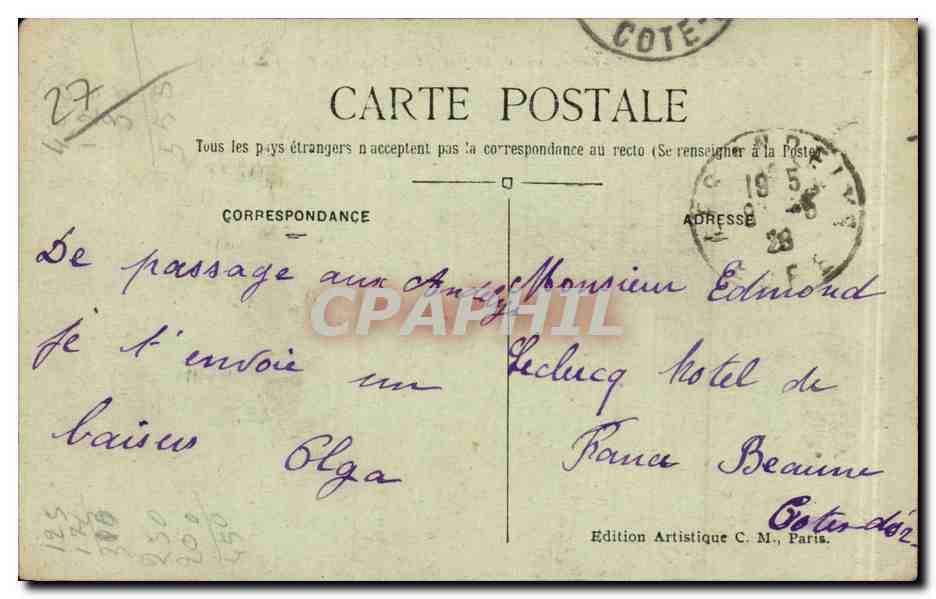 COTE-
27
CARTE POSTALE
Tous les pays étrangers n'acceptent pas la correspondance au recto (Se renseigner à la Poste)
CORRESPONDANCE
De passage aux Andys
je t'envoie un
baisers Olga
ADRESSE
19 5
28
Monsieur Edmond
Leclucq hotel de
France Beaune
Cotes d'or
Edition Artistique C. M., Paris.
CPAPHIL
125
175
300
250
200
450
555